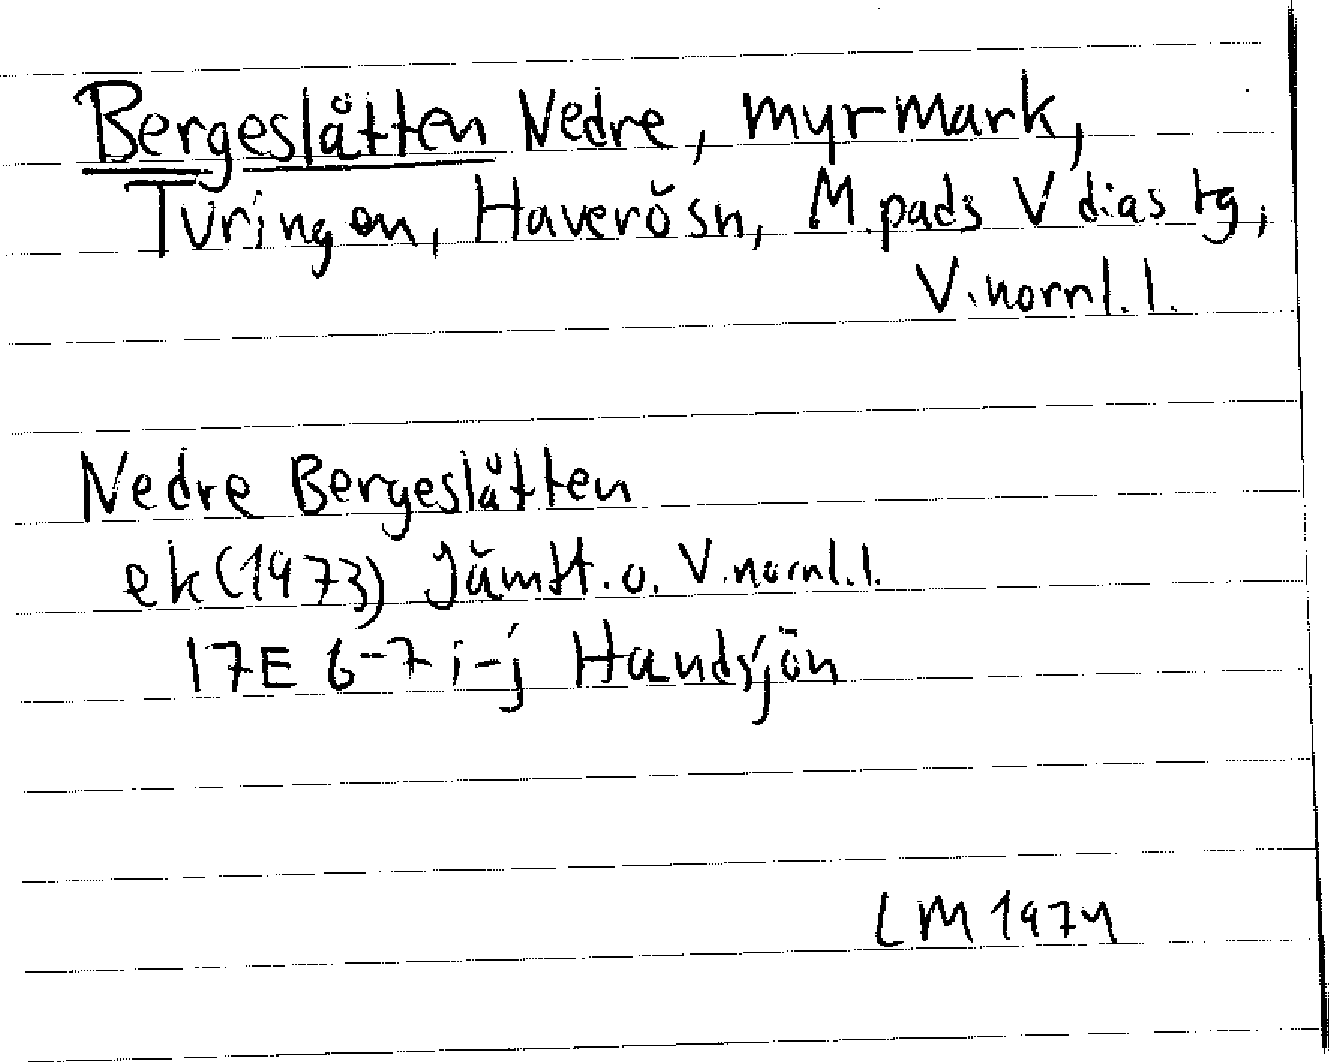 Bergeslåtten Nedre, myrmark,
Turingen, Haverö sn, M.pads V dias tg,
V.norrl.l.
Nedre Bergeslåtten
ek (1973) Jämtl.o. V.norrl.l.
17E 6-7 i-j Handsjön
LM 1974